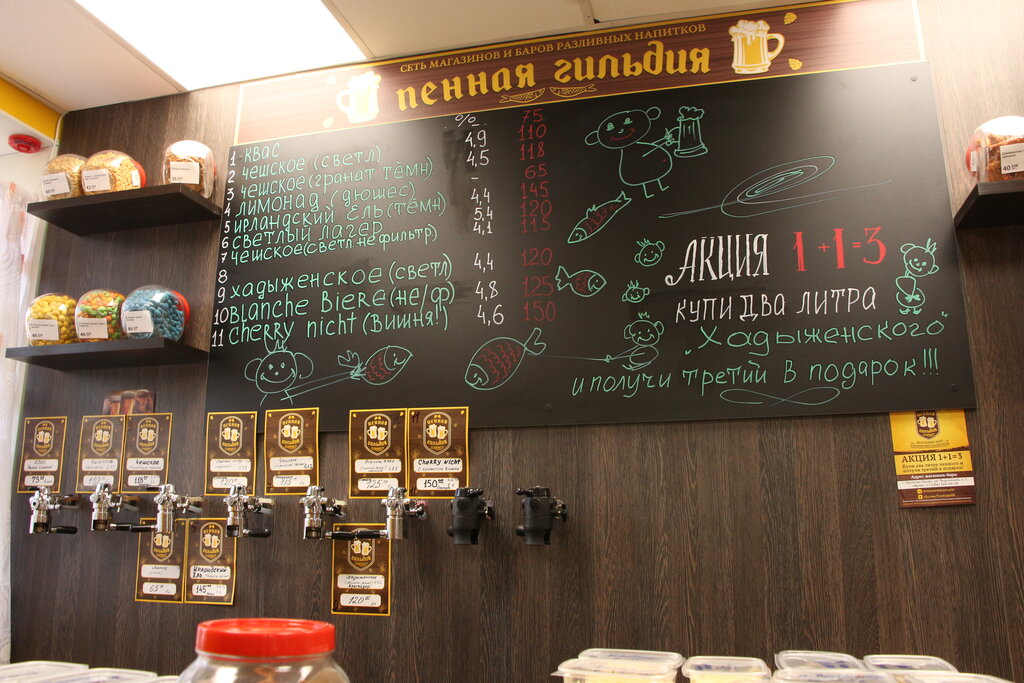 СЕТЬ МАГАЗИНОВ И БАРОВ РАЗЛИВНЫХ НАПИТКОВ
пенная гильдия
%
1 - КВАС 75
2 ЧЕШСКОЕ (СВЕТЛ) 4,9 110
3 ЧЕШСКОЕ (ГРАНАТ ТЁМН) 4,5 118
4 ЛИМОНАД (ДЮШЕС) - 65
5 ИРЛАНДСКИЙ ЕЛЬ (ТЁМН) 4,4 145
6 СВЕТЛЫЙ ЛАГЕР 5,4 120
7 ЧЕШСКОЕ (СВЕТЛ НЕФИЛЬТР) 4,1 115
8
9 ХАДЫЖЕНСКОЕ (СВЕТЛ) 4,4 120
10 Blanche Biere (НЕ/Ф) 4,8 125
11 Cherry Nicht (ВИШНЯ!!) 4,6 150
АКЦИЯ 1+1=3
КУПИ ДВА ЛИТРА
"Хадыженского"
и получи третий в подарок!!!
ПЕННАЯ ГИЛЬДИЯ
КВАС
75
ЧЕШСКОЕ
110
ЧЕШСКОЕ
118
Cherry Nicht
150
125
65
ИРЛАНДСКИЙ ЕЛЬ
145
120
АКЦИЯ 1+1=3
Купи два литра пенного и получи третий в подарок!